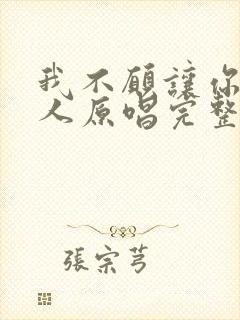 我不願讓你
人原唱完整
張宗芎